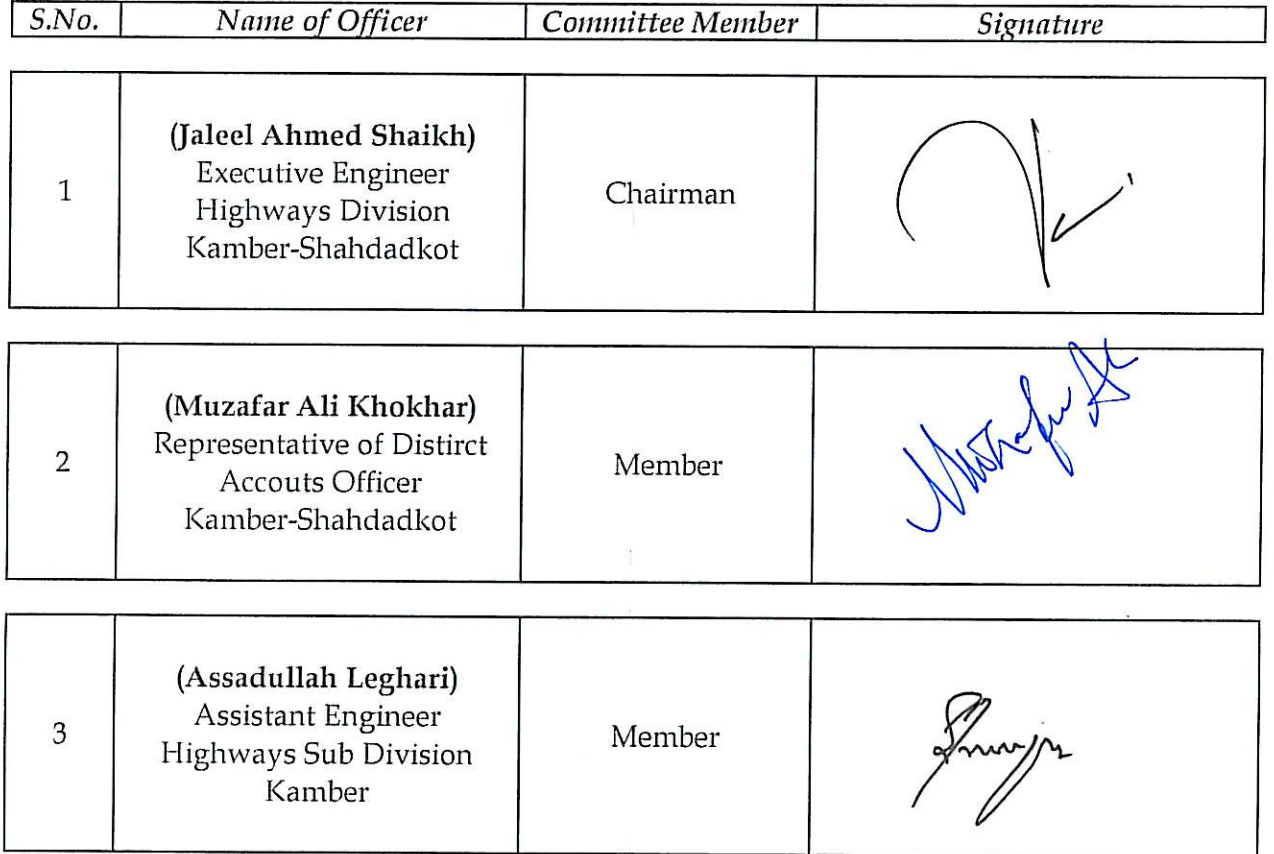 S.No. Name of Officer Committee Member Signature
(Jaleel Ahmed Shaikh)
Executive Engineer
1 Highways Division Chairman
Kamber-Shahdadkot
(Muzafar Ali Khokhar)
Representative of Distirct
2 Accouts Officer Member
Kamber-Shahdadkot
(Assadullah Leghari)
Assistant Engineer
3 Highways Sub Division Member
Kamber